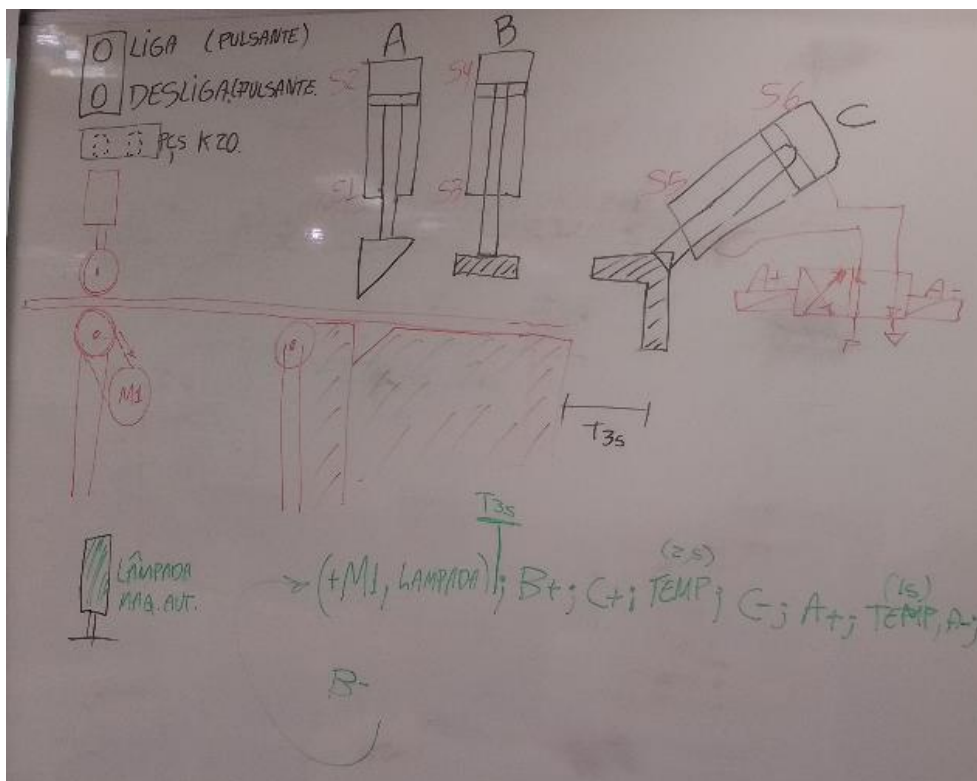 LIGA (PULSANTE)
DESLIGA (PULSANTE.
PÇS K20.
A
B
C
S2
S1
S4
S3
S6
S5
A+
A-
M1
T3s
LÂMPADA
MAQ. AUT.
T3s
(+M1, LAMPADA); B+; C+; TEMP; C-; A+; TEMP, A-;
(2,5)
(1s)
B-